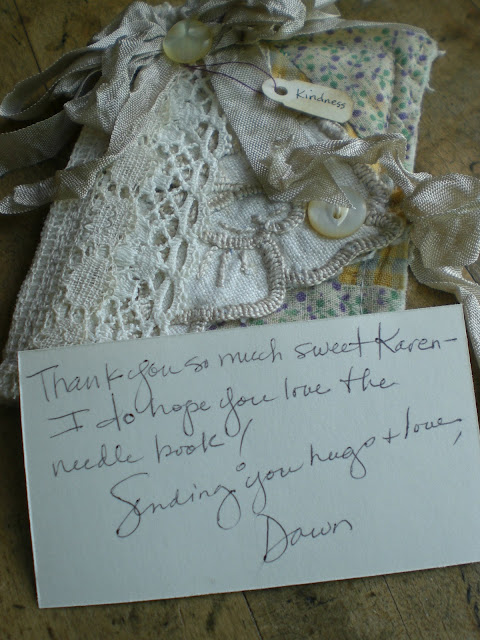 Kindness
Thank you so much sweet Karen-
I do hope you love the
needle book!
Sending you hugs + love,
Dawn